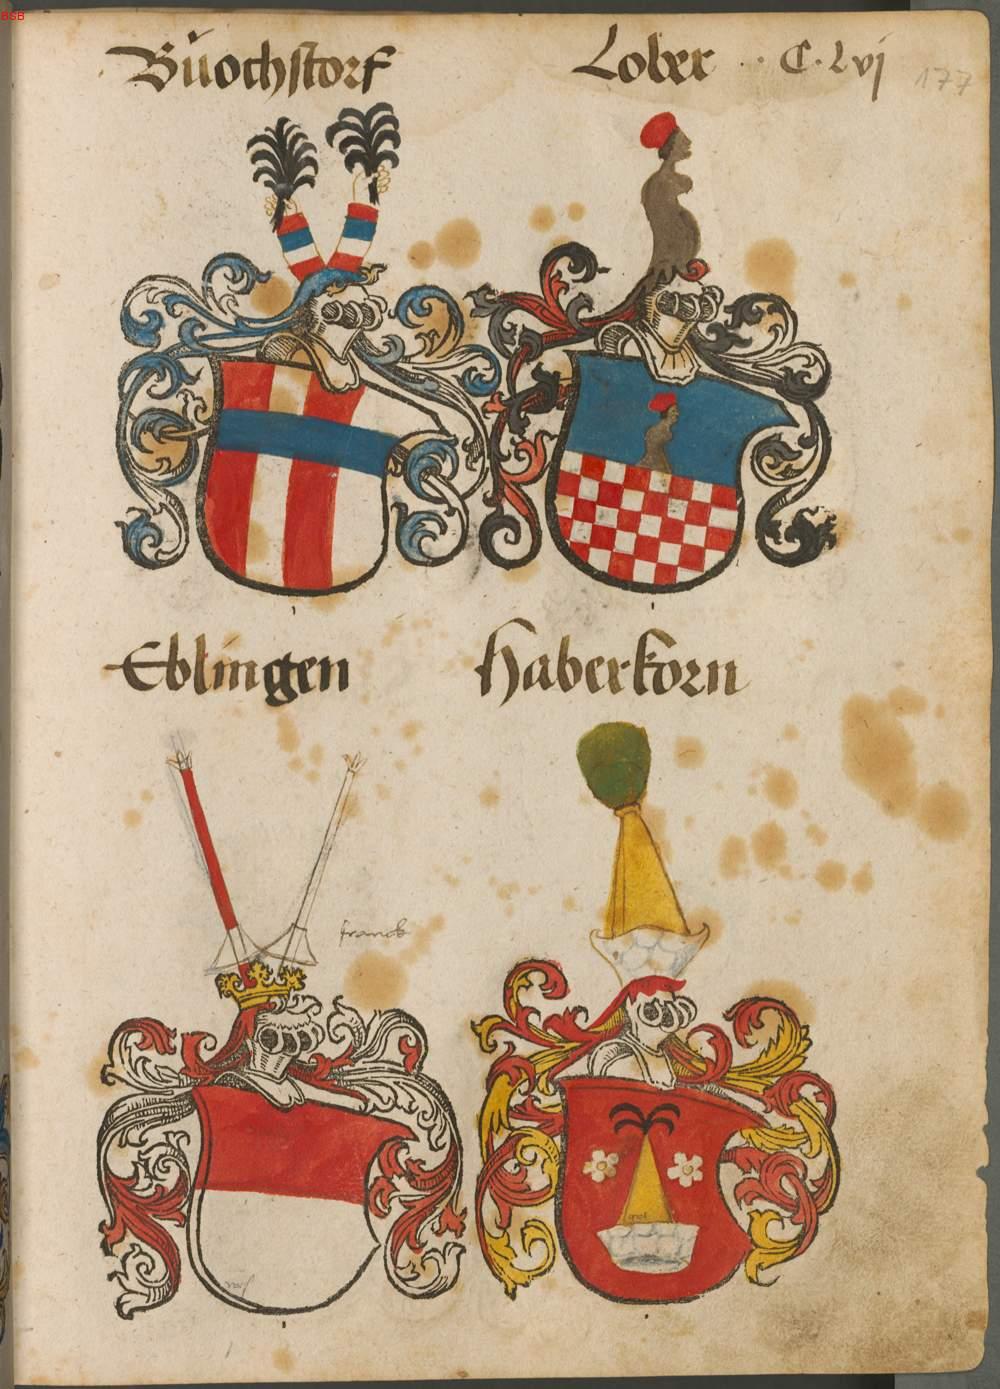 BSB
Büochstorf
Lober · · C · Lvj
177
Eblingen
Haberkorn
franck